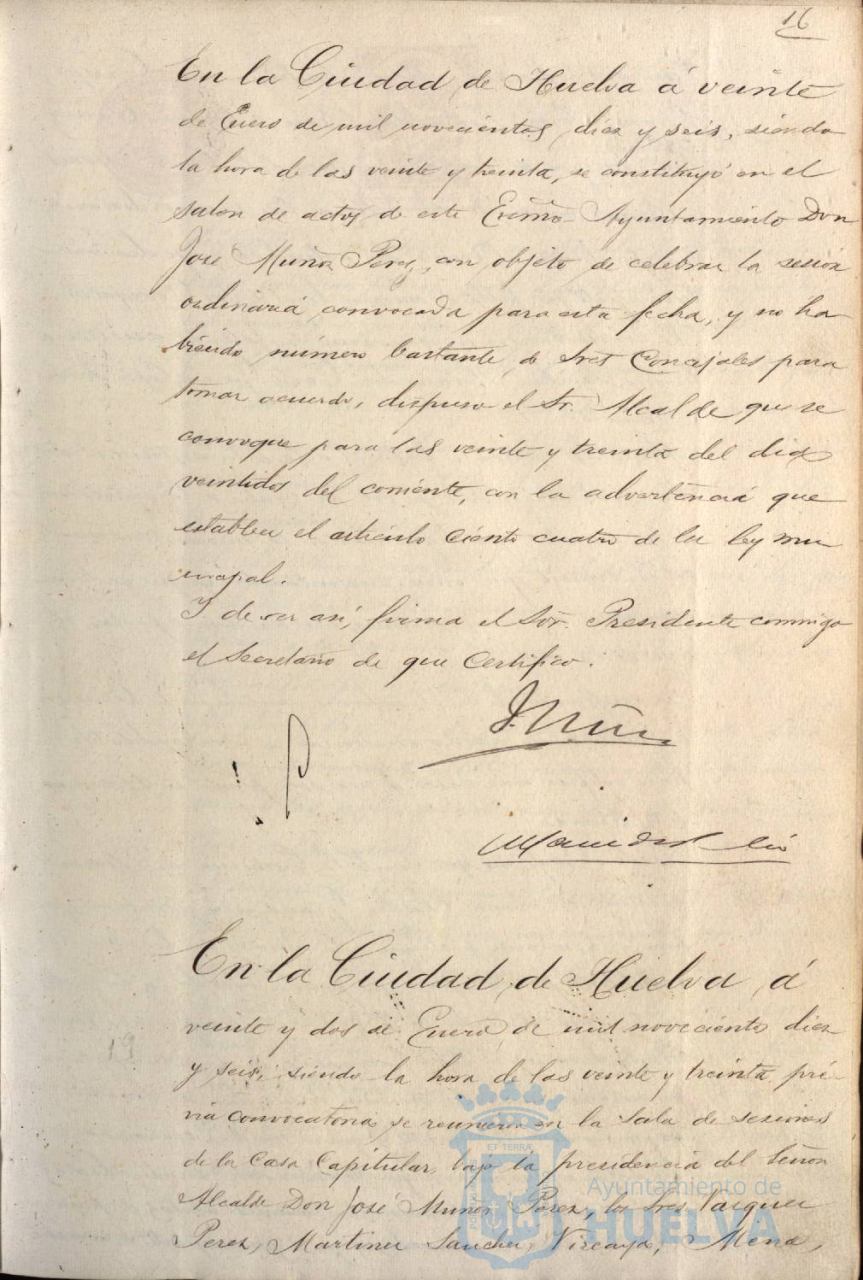 16
En la Ciudad de Huelva á veinte
de Enero de mil novecientos diez y seis, siendo
la hora de las veinte y treinta, se constituyó en el
salon de actos de este Excmo Ayuntamiento Don
José Muñoz Perez, con objeto de celebrar la sesion
ordinaria convocada para esta fecha, y no ha
biendo número bastante de Sres Concejales para
tomar acuerdo, dispuso el Sr. Alcalde que se
convoque para las veinte y treinta del dia
veintidos del corriente, con la advertencia que
establece el articulo ciento cuatro de la ley mu
nicipal.
Y de ser asi, firma el Sor. Presidente conmigo
el Secretario de que Certifico.
J. Muñ
En la Ciudad de Huelva á
veinte y dos de Enero de mil novecientos diez
y seis, siendo la hora de las veinte y treinta pré
via convocatoria se reunieron en la Sala de sesiones
de la Casa Capitular, bajo la presidencia del Señor
Alcalde Don José Muñoz Perez, los Sres Vazquez
Perez, Martinez Sanchez, Vizcaya, Mena,
19
ET TERRA
Ayuntamiento de
HUELVA